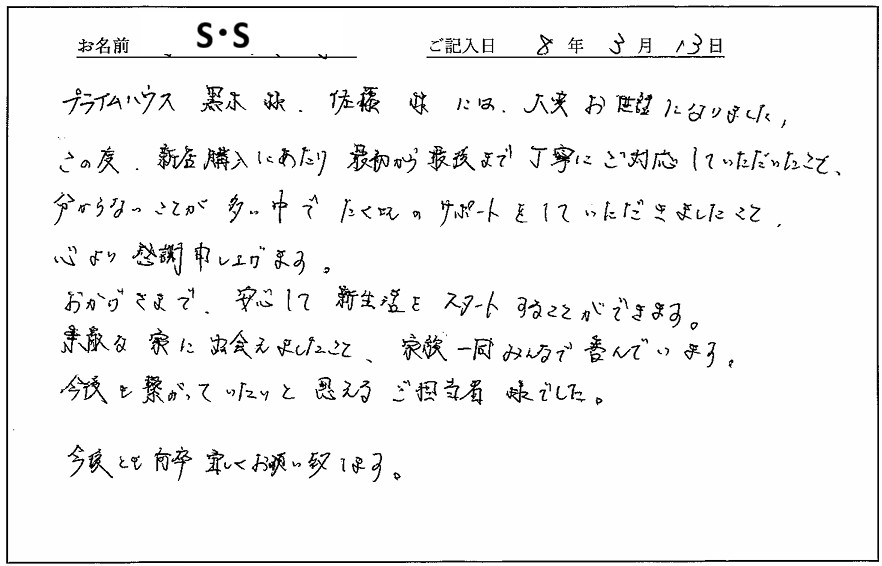 お名前 S・S ご記入日 8年3月13日
プライムハウス 黒木様、佐藤様には、大変お世話になりました。
この度、新居購入にあたり最初から最後まで丁寧にご対応していただいたこと、
分からないことが多い中でたくさんのサポートをしていただきましたこと、
心より感謝申し上げます。
おかげさまで、安心して新生活をスタートすることができます。
素敵な家に出会えましたこと、家族一同みんなで喜んでいます。
今後も繋がっていたいと思えるご担当者様でした。
今後とも何卒宜しくお願い致します。